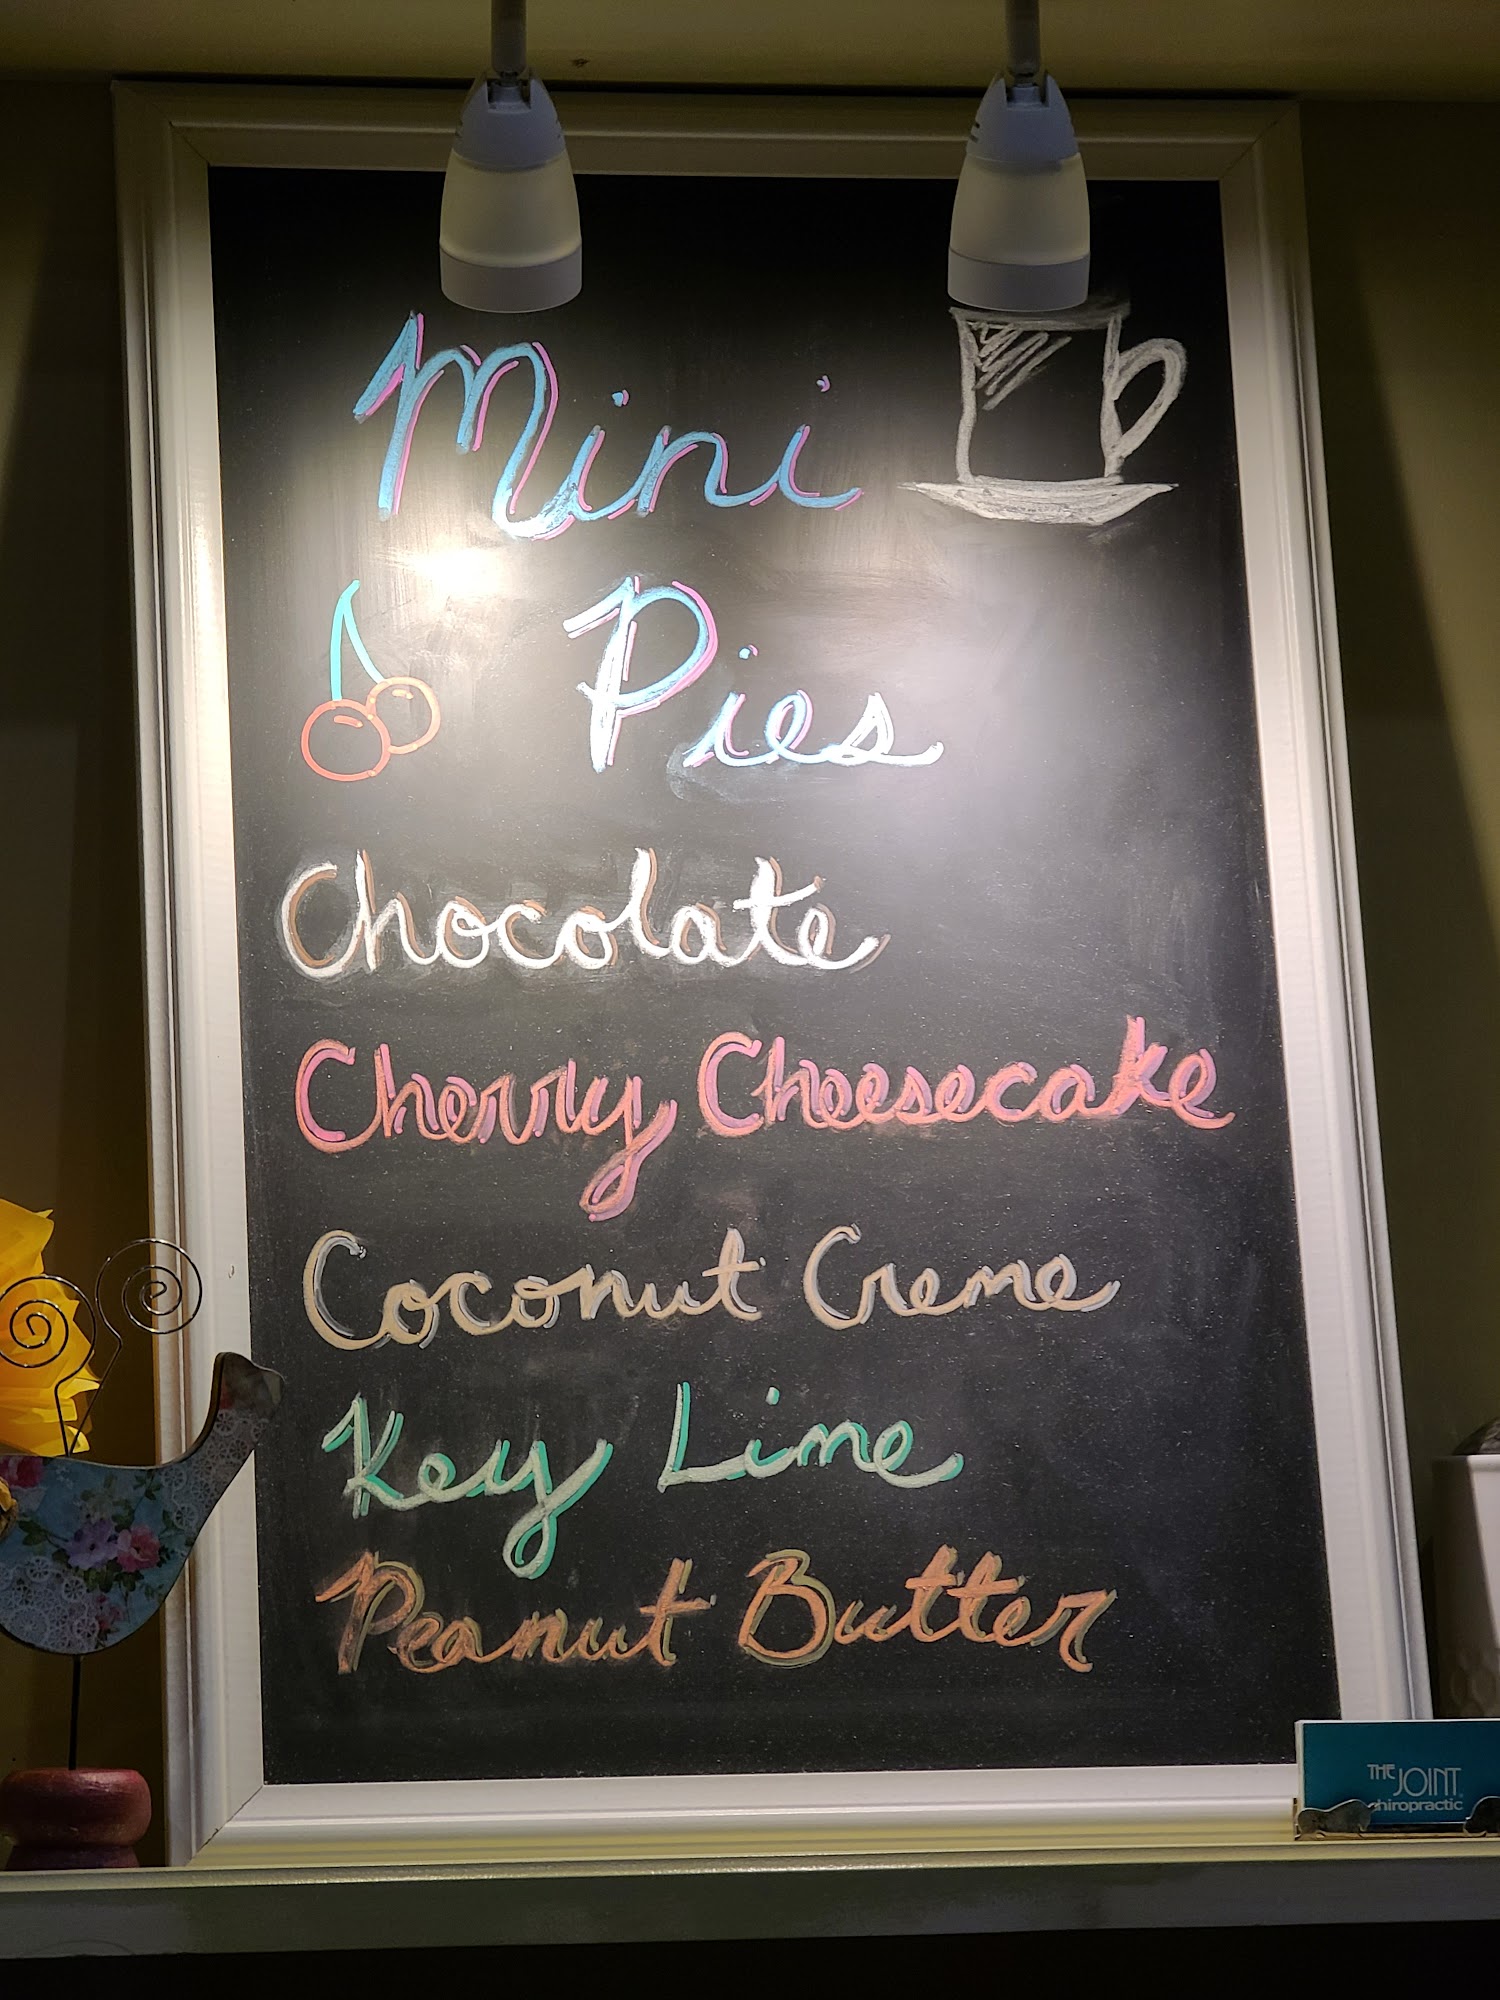 Mini
Pies
Chocolate
Cherry Cheesecake
Coconut Creme
Key Lime
Peanut Butter
THE JOINT
chiropractic